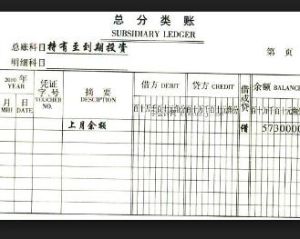 总分类账
SUBSIDIARY LEDGER
总账科目 持有至到期投资 第 页
明细科目
2010年 凭证 摘要 借方 DEBIT 贷方 CREDIT 借或贷 余额 BALANCE
YEAR 字 号
月 日 VOUCHER DESCIPTION
MRH DATE NO.
上月余额 借 5730000